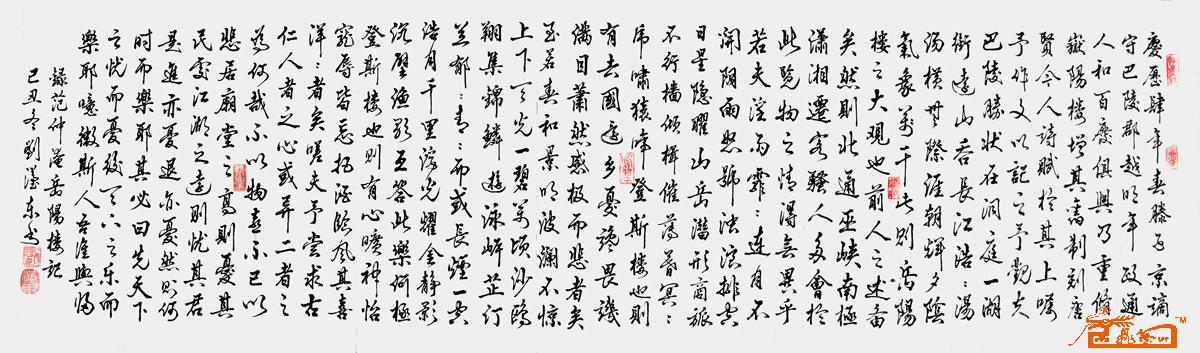 慶曆肆年春滕子京謫
守巴陵郡越明年政通
人和百廢俱興乃重修
嶽陽樓增其舊制刻唐
賢今人詩賦於其上囑
予作文以記之予觀夫
巴陵勝狀在洞庭一湖
銜遠山吞長江浩浩湯
湯橫無際涯朝輝夕陰
氣象萬千此則岳陽
樓之大觀也前人之述備
矣然則北通巫峽南極
瀟湘遷客騷人多會於
此覽物之情得無異乎
若夫淫雨霏霏連月不
開陰風怒號濁浪排空
日星隱曜山岳潛形商旅
不行檣傾楫摧薄暮冥冥
虎嘯猿啼登斯樓也則
有去國懷鄉憂讒畏譏
滿目蕭然感極而悲者矣
至若春和景明波瀾不驚
上下天光一碧萬頃沙鷗
翔集錦鱗游泳岸芷汀
蘭郁郁青青而或長煙一空
皓月千里浮光耀金靜影
沉璧漁歌互答此樂何極
登斯樓也則有心曠神怡
寵辱皆忘把酒臨風其喜
洋洋者矣嗟夫予嘗求古
仁人者之心或異二者之
為何哉不以物喜不已以
悲居廟堂之高則憂其
民處江湖之遠則憂其君
是進亦憂退亦憂然則何
時而樂耶其必曰先天下
之憂而憂後天下之樂而
樂耶噫微斯人吾誰與歸
錄范仲淹岳陽樓記
己丑冬劉澤東書